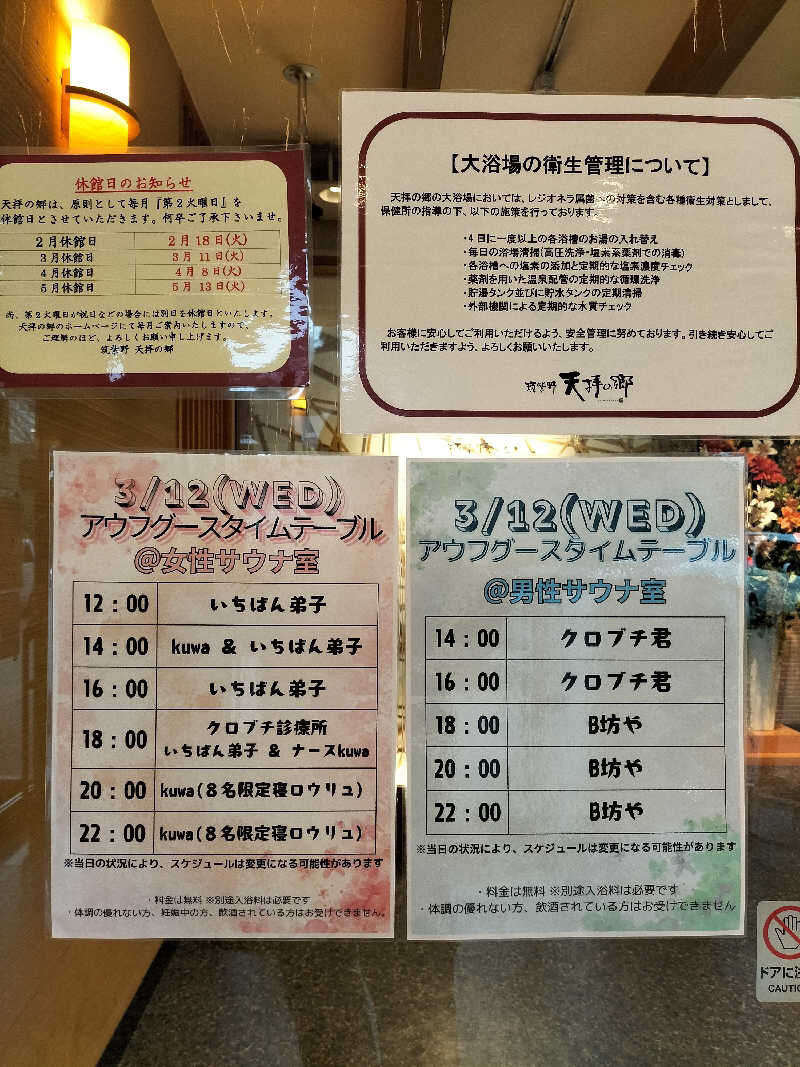 休館日のお知らせ
天拝の郷は、原則として毎月『第２火曜日』を
休館日とさせていただきます。何卒ご了承下さいませ。
２月休館日 ２月18日(火)
３月休館日 ３月 11日(火)
４月休館日 ４月 ８日(火)
５月休館日 ５月 13日(火)
尚、第２火曜日が祝日などの場合には別日を休館日といたします。
天拝の郷のホームページにて毎月ご案内いたしますので、
ご理解のほど、よろしくお願い申し上げます。
筑紫野 天拝の郷
【大浴場の衛生管理について】
天拝の郷の大浴場においては、レジオネラ属菌への対策を含む各種衛生対策としまして、
保健所の指導の下、以下の施策を行っております。
・４日に一度以上の各浴槽のお湯の入れ替え
・毎日の浴場清掃(高圧洗浄・塩素系薬剤での消毒)
・各浴槽への塩素の添加と定期的な塩素濃度チェック
・薬剤を用いた温泉配管の定期的な循環洗浄
・貯湯タンク並びに貯水タンクの定期清掃
・外部機関による定期的な水質チェック
お客様に安心してご利用いただけるよう、安全管理に努めております。引き続き安心してご
利用いただきますよう、よろしくお願いいたします。
筑紫野 天拝の郷
3/12(WED)
アウフグースタイムテーブル
@女性サウナ室
12：00 いちばん弟子
14：00 kuwa & いちばん弟子
16：00 いちばん弟子
18：00 クロブチ診療所
いちばん弟子 & ナースkuwa
20：00 kuwa(８名限定寝ロウリュ)
22：00 kuwa(８名限定寝ロウリュ)
※当日の状況により、スケジュールは変更になる可能性があります
・料金は無料 ※別途入浴料は必要です
・体調の優れない方、妊娠中の方、飲酒されている方はお受けできません。
3/12(WED)
アウフグースタイムテーブル
@男性サウナ室
14：00 クロブチ君
16：00 クロブチ君
18：00 B坊や
20：00 B坊や
22：00 B坊や
※当日の状況により、スケジュールは変更になる可能性があります
・料金は無料 ※別途入浴料は必要です
・体調の優れない方、飲酒されている方はお受けできません。
ドアに注
CAUTIO